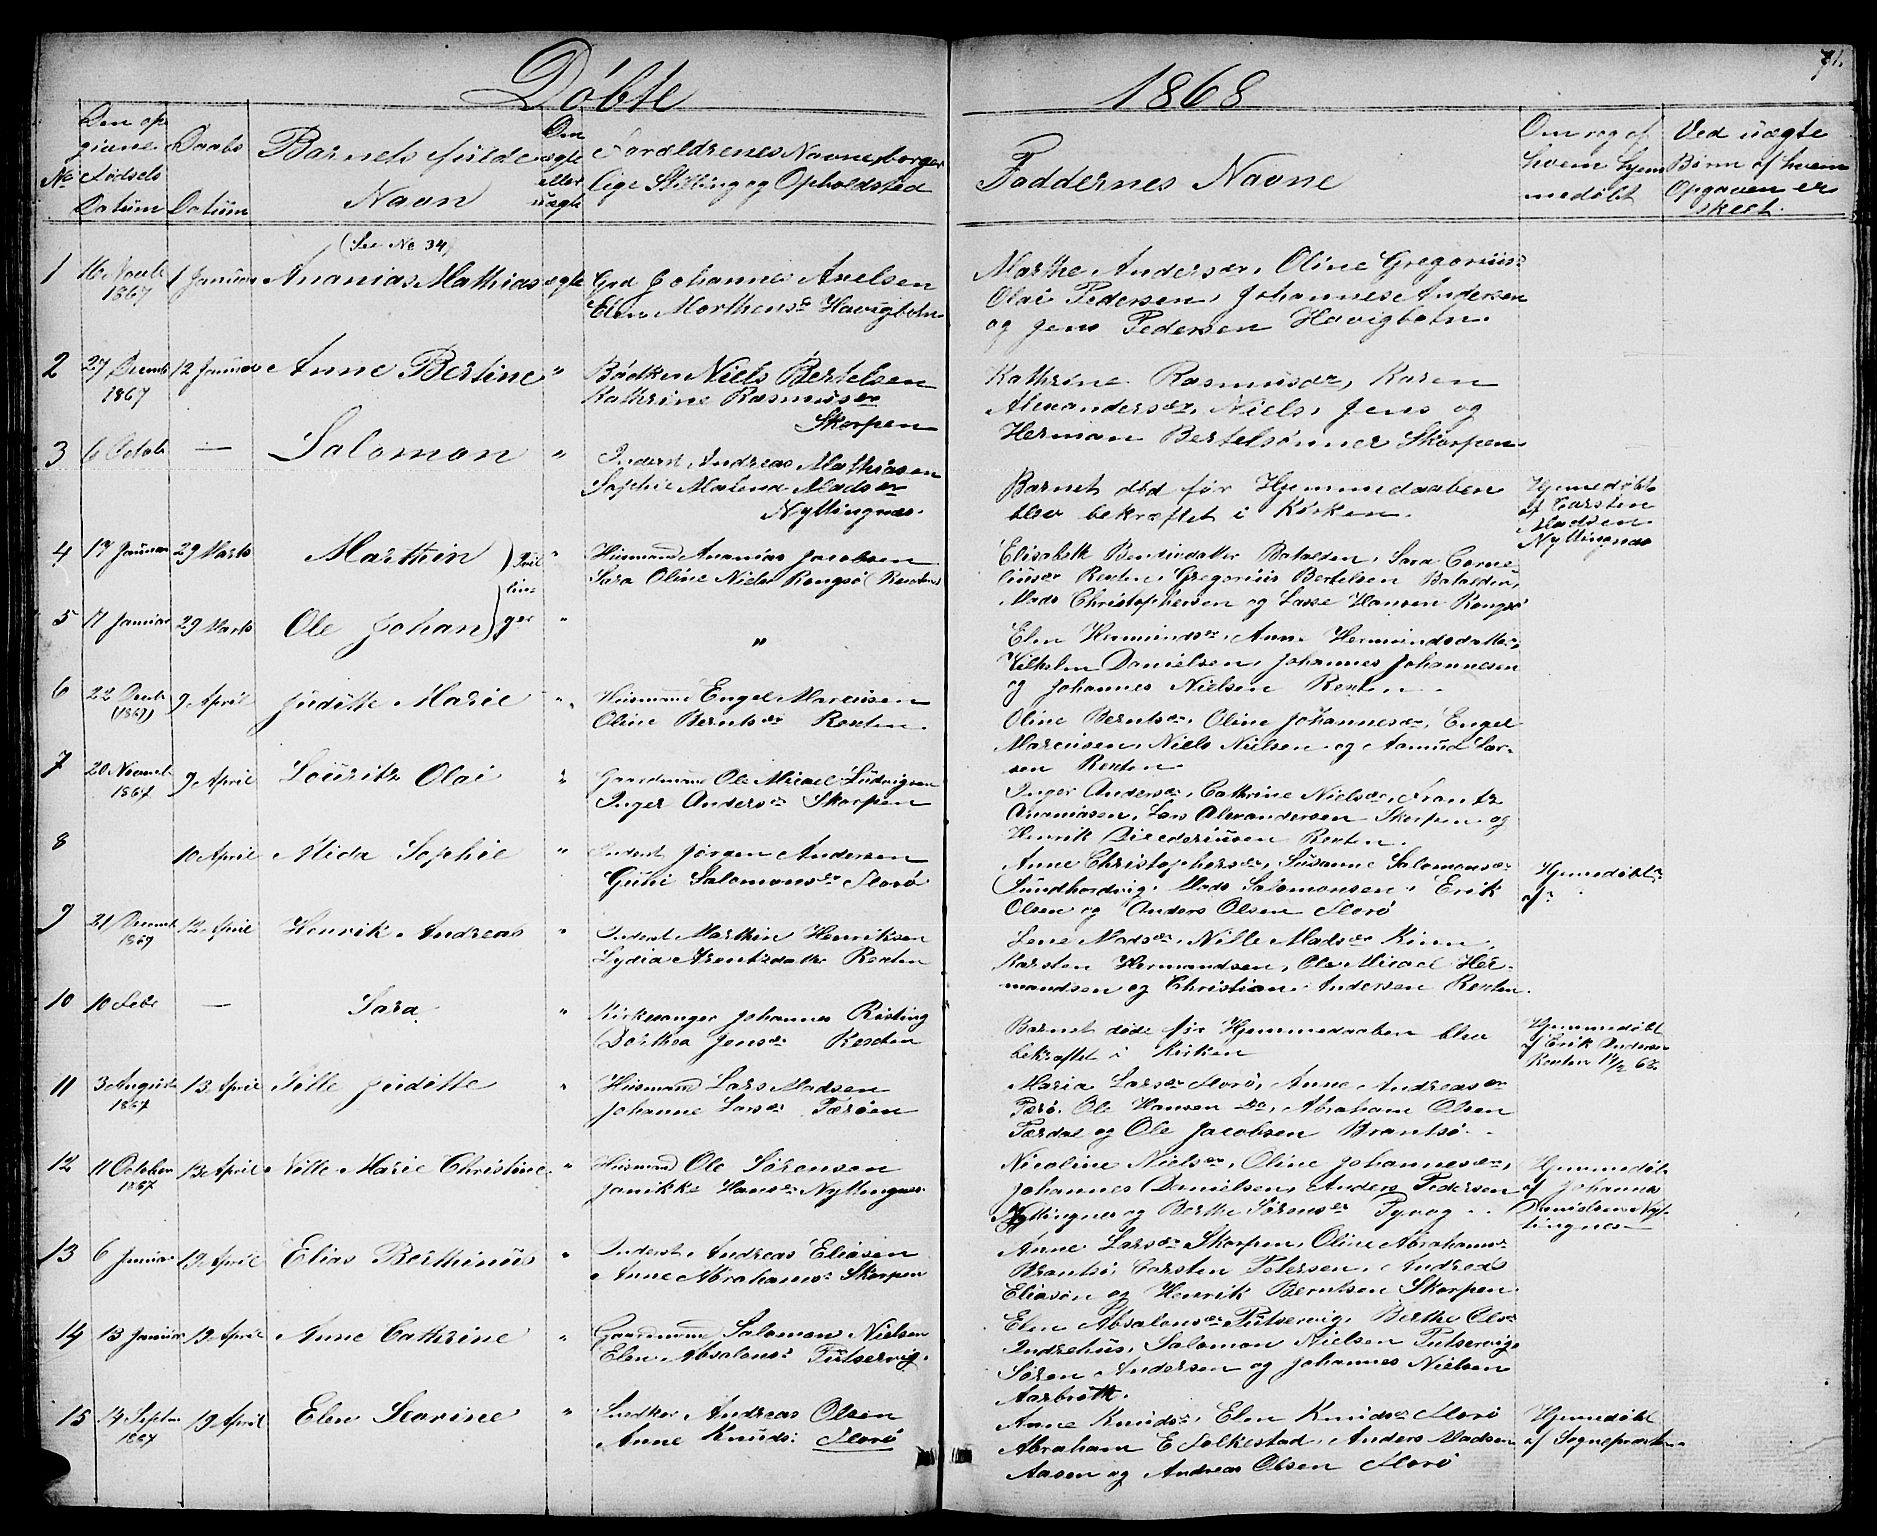 71.
Døbte 1868
No
Den op
givne
Fødsels
Datum
Daabs
Datum
Barnets fulde
Navn
Om
ægte
eller
uægte
Forældrenes Navne, borger
lige Stilling og Opholdsted
Faddernes Navne
Om og af
hvem hjem
medøbt
Ved uægte
Børn af hvem
Opgaven er
skeet.
(See No 34)
1 16 Novb 1867 1 Januar Ananias Mathias ægte Grd Johannes Axelsen
Elen Morthensdr Havigbotn
Marthe Andersdr, Oline Gregorius
Olai Pedersen, Johannes Andersen
og Jens Pedersen Havigbotn.
2 27 Decemb 1867 12 Januar Anne Bertine " Bødker Niels Bertelsen
Kathrine Rasmusdr
Skorpen
Kathrine Rasmusdr, Karen
Alexandersdr, Niels, Jens og
Herman Bertelsønner Skorpen
3 6 Octob — Salomon " Inderst Andreas Mathiasen
Sophie Malena Madsdr
Nyttingnæs.
Barnet død før Hjemmedaaben
blev bekræftet i Kirken.
Hjemmedøbt
af Carsten
Madsen
Nyttingnæs
4 17 Januar 29 Marts Marthin Tvil " Huusmand Ananias Jacobsen
Sara Oline Nielsdr Rongsø (Rexten)
Elisabeth Bentsdatter Batalden, Sara Corne-
liusdr Rexten, Gregorius Bertelsen Batalden,
Mads Christophersen og Lasse Hansen Rongsø
lin-
5 17 Januar 29 Marts Ole Johan ger " "
Elen Hermundsdr, Anne Hermundsdatter
Vilhelm Danielsen, Johannes Johannesen
og Johannes Nielsen Rexten.
6 22 Decb (1867) 9 April Juditte Marie " Huusmand Engel Marcusen
Oline Berntsdr Rexten.
Oline Berntsdr, Oline Johannesdr, Engel
Marcusen, Niels Nielsen og Asmud Lar-
sen Rexten.
7 20 Novemb 1867 9 April Lauritz Olai " Gaardmand Ole Micael Ludvigsen
Inger Andersdr Skorpen
Inger Andersdr, Cathrine Nielsdr, Frantz
Ananiasen, Lars Alexandersen Skorpen og
Henrik Diederiusen Rexten.
8 10 April Mida Sophie " Inderst Jørgen Andersen
Guhi Salomonsdr Florø
Anne Christophersdr, Susanne Salomonsdr
Sundhordvig, Mads Salomonsen, Erik
Olsen og Anders Olsen Florø
Hjemmedøbt
af
9 21 Decemb 1867 12 April Henrik Andreas " Inderst Marthin Henriksen
Lydia Arentzdatter Rexten
Lene Madsdr, Nille Madsdr Kinn,
Karsten Hermandsen, Ole Micael Her-
mandsen og Christian Andersen Rexten.
10 10 Febr — Sara " Kirkesanger Johannes Risting
Dorthea Jensdr Rexten
Barnet døde før Hjemmedaaben blev
bekræftet i Kirken
Hjemmedøbt
af Erik Andersen
Rexten 14/2 68.
11 3 August 1867 13 April Sitte Juditte " Huusmand Lars Madsen
Johanne Larsdr Færøen
Maria Larsdr Florø, Anne Andreasdr
Færø, Ole Hansen Do, Abraham Olsen
Færdal og Ole Jacobsen Brantsø.
12 11 October 1867 13 April Sitte Marie Christine " Huusmand Ole Sørensen
Janikke Hansdr Nyttingnæs
Nicoline Nielsdr, Oline Johannesdr,
Johannes Danielsen, Anders Pedersen
Nyttingnes og Berthe Sørensdr
Hjemmedøbt
af Johannes
Danielsen Nyt-
tingnes
13 6 Januar 19 April Elias Berthinus " Inderst Andreas Eliasen
Anne Abrahamsdr Skorpen
Anne Larsdr Skorpen, Oline Abrahamsdr
Brantsø, Carsten Petersen, Andreas
Eliasøn og Henrik Berntsen Skorpen
14 13 Januar 19 April Anne Cathrine " Gaardmand Salomon Nielsen
Elen Absalonsdr
Elen Absalonsdr Berthe Olsdr
Indrehus, Salomon Nielsen
Søren Andersen og Johannes Nielsen
Aarbrott.
15 14 Septbr 1867 19 April Elen Severine " Snedker Andreas Olsen
Anne Knudsdr Florø
Anne Knudsdr, Elen Knudsdr Florø
Abraham E Folkestad, Anders Madsen
Aasen og Andreas Olsen Florø
Hjemmedøbt
af Sognepræsten